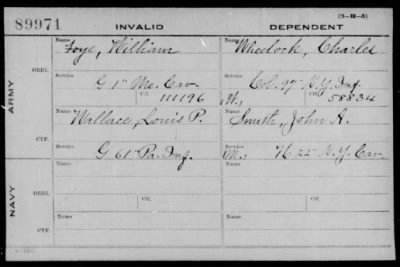 89971 INVALID DEPENDENT (3-H-5)
ARMY
ORIG.
Name Foye, William Name Wheelock, Charles
Service G 1" Me. Cav. Service Col. 97" N.Y. Inf.
Ctf. 111196 (M.) Ctf. 58834
CTF.
Name Wallace, Louis P. Name Smith, John A.
Service G 61" Pa. Inf. Service (M.) H 22" N.Y. Cav.
NAVY
ORIG.
Name Name
Service Ctf. Service Ctf.
CTF.
Name Name
Service Service